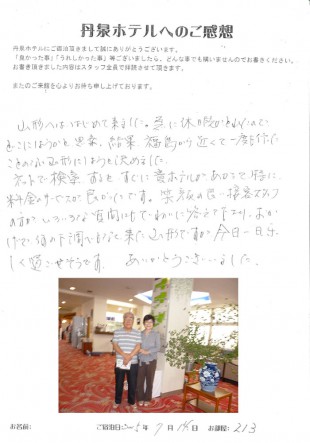 丹泉ホテルへのご感想
丹泉ホテルにご宿泊頂きまして誠にありがとうございます。
「良かった事」「うれしかった事」等ございましたら、どんな事でも構いませんのでお書きください。
お書き頂きました内容はスタッフ全員で拝読させて頂きます。
またのご来館を心よりお待ち申し上げております。
山形へははじめて来ました。急に休暇が
どこに行こうかと思案、結果 福島から近くて一度も行った
ことのない山形に行こうと決めました。
ネットで検索するとすぐに貴ホテルがあがって 特に
料金のサービスが良かったです。笑顔の良い接客スタッフ
の方がいろいろな質問にもていねいに答えて下さり、おか
げで何の下調べもなく来た山形ですが今日一日楽
しく過ごせそうです。ありがとうございました。
お名前: ご宿泊日: 5年 7月 14日 お部屋: 213